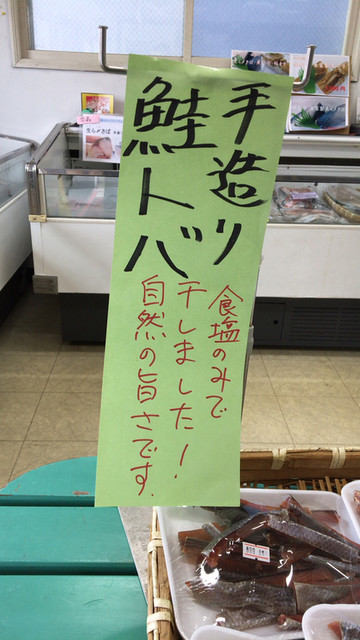 手造り
鮭トバ
食塩のみで
干しました！
自然の旨さです.